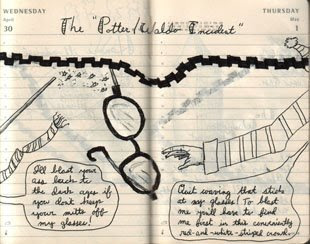 WEDNESDAY
April
30
THURSDAY
May
1
The "Potter/Waldo Incident"
I'll blast your
ass back to
the dark ages if
you don't keep
your mitts off
my glasses!
Quit waving that stick
at my glasses! To blast
me you'll have to find
me first in this conveniently
red-and-white-striped crowd.